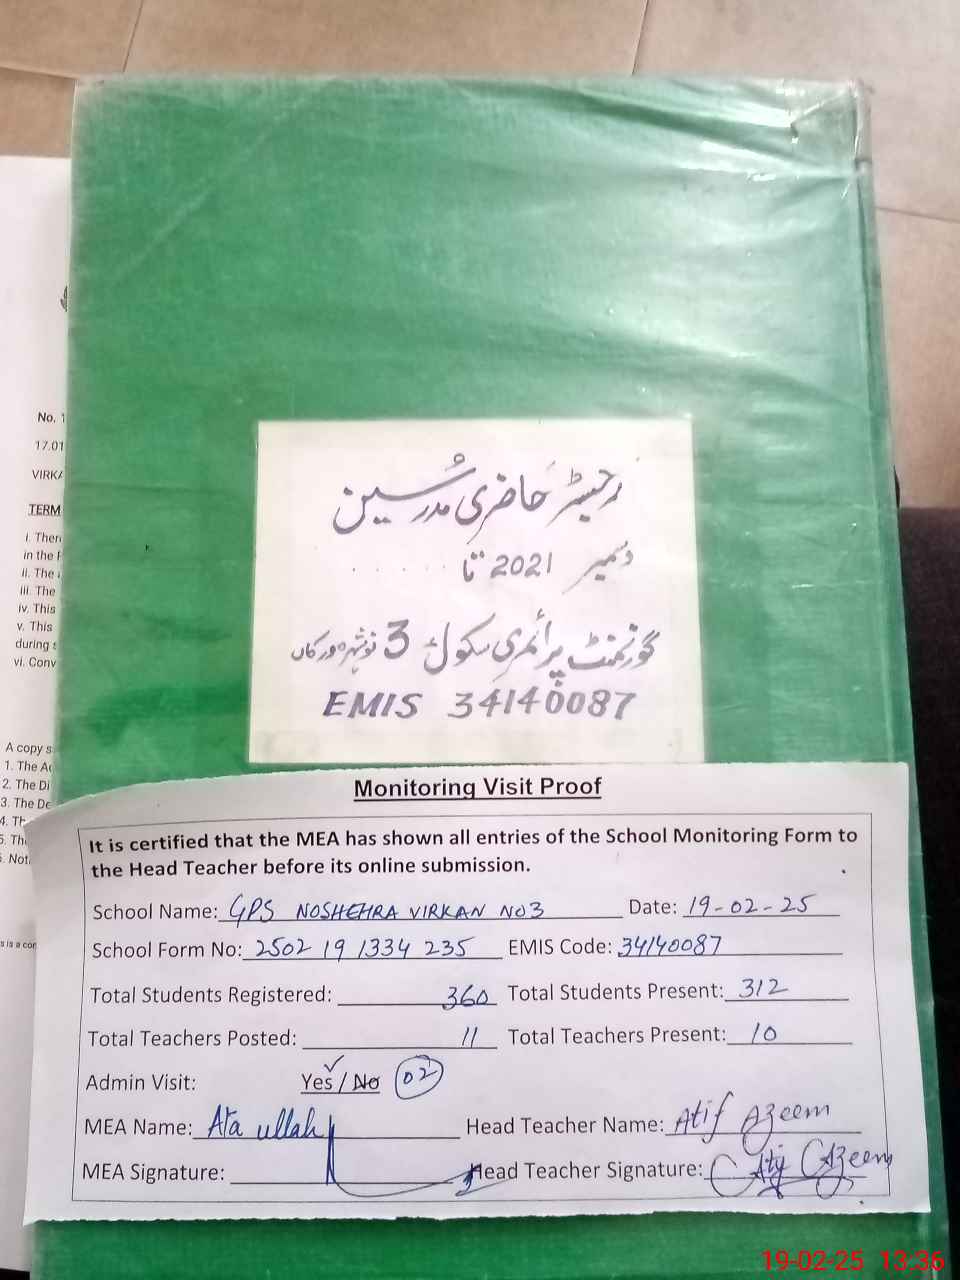 No. 1
17.01
VIRKA
TERM
i. Ther
in the F
ii. The
iii. The
iv. This
v. This
during s
vi. Conv
A copy s
1. The Ac
2. The Di
3. The De
4. Th
5. The
رجسٹر حاضری مدرسین
دسمبر 2021 تا ......
گورنمنٹ پرائمری سکول 3 نوشہرہ ورکاں
EMIS 34140087
Monitoring Visit Proof
It is certified that the MEA has shown all entries of the School Monitoring Form to
the Head Teacher before its online submission.
School Name: GPS NOSHEHRA VIRKAN NO3 Date: 19-02-25
School Form No: 2502 19 1334 235 EMIS Code: 34140087
Total Students Registered: 360 Total Students Present: 312
Total Teachers Posted: 11 Total Teachers Present: 10
Admin Visit: Yes / No 02
MEA Name: Ata ullah Head Teacher Name: Atif Azeem
MEA Signature: Head Teacher Signature: Atif Azeem
19-02-25 13:36